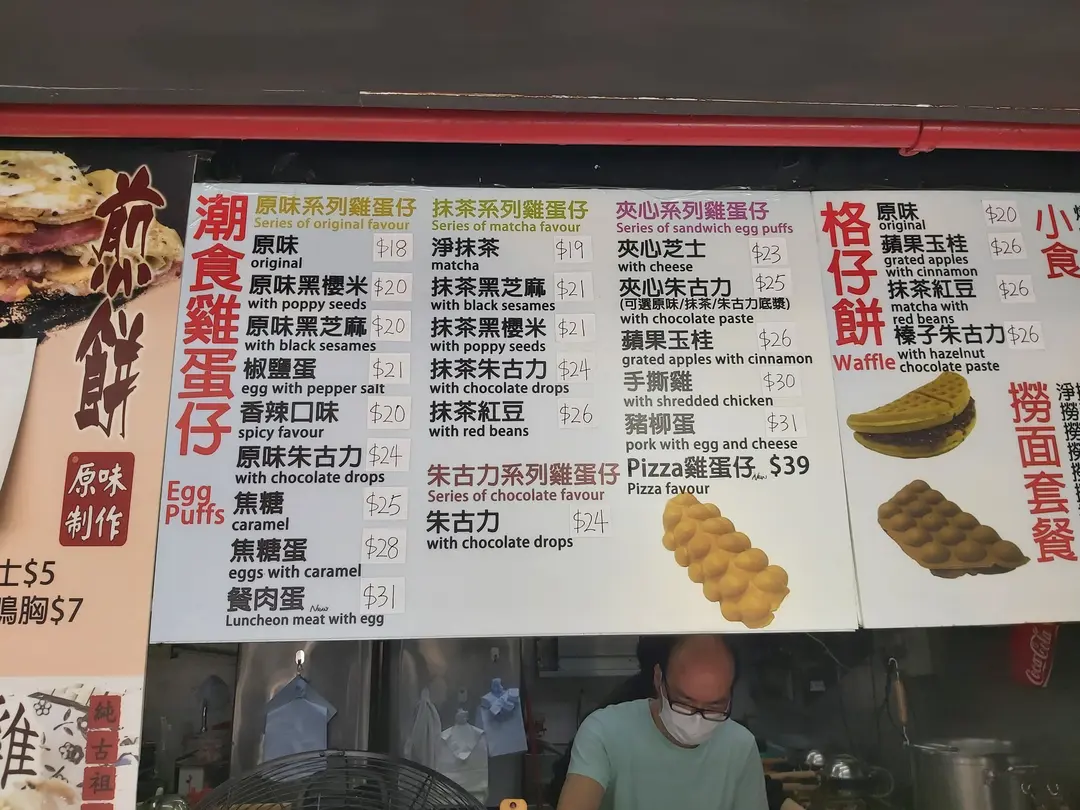 煎餅
原味
制作
士$5
鴨胸$7
雞
純
古
祖
潮食雞蛋仔
Egg
Puffs
原味系列雞蛋仔
Series of original favour
原味 $18
original
原味黑櫻米 $20
with poppy seeds
原味黑芝麻 $20
with black sesames
椒鹽蛋 $21
egg with pepper salt
香辣口味 $20
spicy favour
原味朱古力 $24
with chocolate drops
焦糖 $25
caramel
焦糖蛋 $28
eggs with caramel
餐肉蛋 New $31
Luncheon meat with egg
抹茶系列雞蛋仔
Series of matcha favour
淨抹茶 $19
matcha
抹茶黑芝麻 $21
with black sesames
抹茶黑櫻米 $21
with poppy seeds
抹茶朱古力 $24
with chocolate drops
抹茶紅豆 $26
with red beans
朱古力系列雞蛋仔
Series of chocolate favour
朱古力 $24
with chocolate drops
夾心系列雞蛋仔
Series of sandwich egg puffs
夾心芝士 $23
with cheese
夾心朱古力 $25
(可選原味/抹茶/朱古力底漿)
with chocolate paste
蘋果玉桂 $26
grated apples with cinnamon
手撕雞 $30
with shredded chicken
豬柳蛋 $31
pork with egg and cheese
Pizza雞蛋仔 New $39
Pizza favour
格仔餅
Waffle
原味 $20
original
蘋果玉桂 $26
grated apples
with cinnamon
抹茶紅豆 $26
matcha with
red beans
榛子朱古力 $26
with hazelnut
chocolate paste
小食
撈面套餐
淨
撈
撈
撈
撈
Coca-Cola